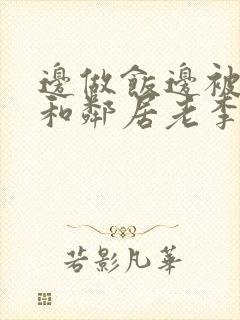 邊做飯邊被
和鄰居老李
若影凡華